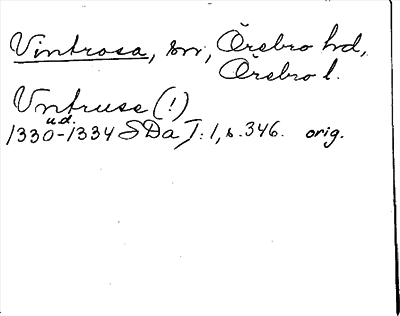 Vintrosa, sn, Örebro hd,
Örebro l.
Vntruse (!)
u.d.
1330-1334 SDa I:1, s. 346. orig.